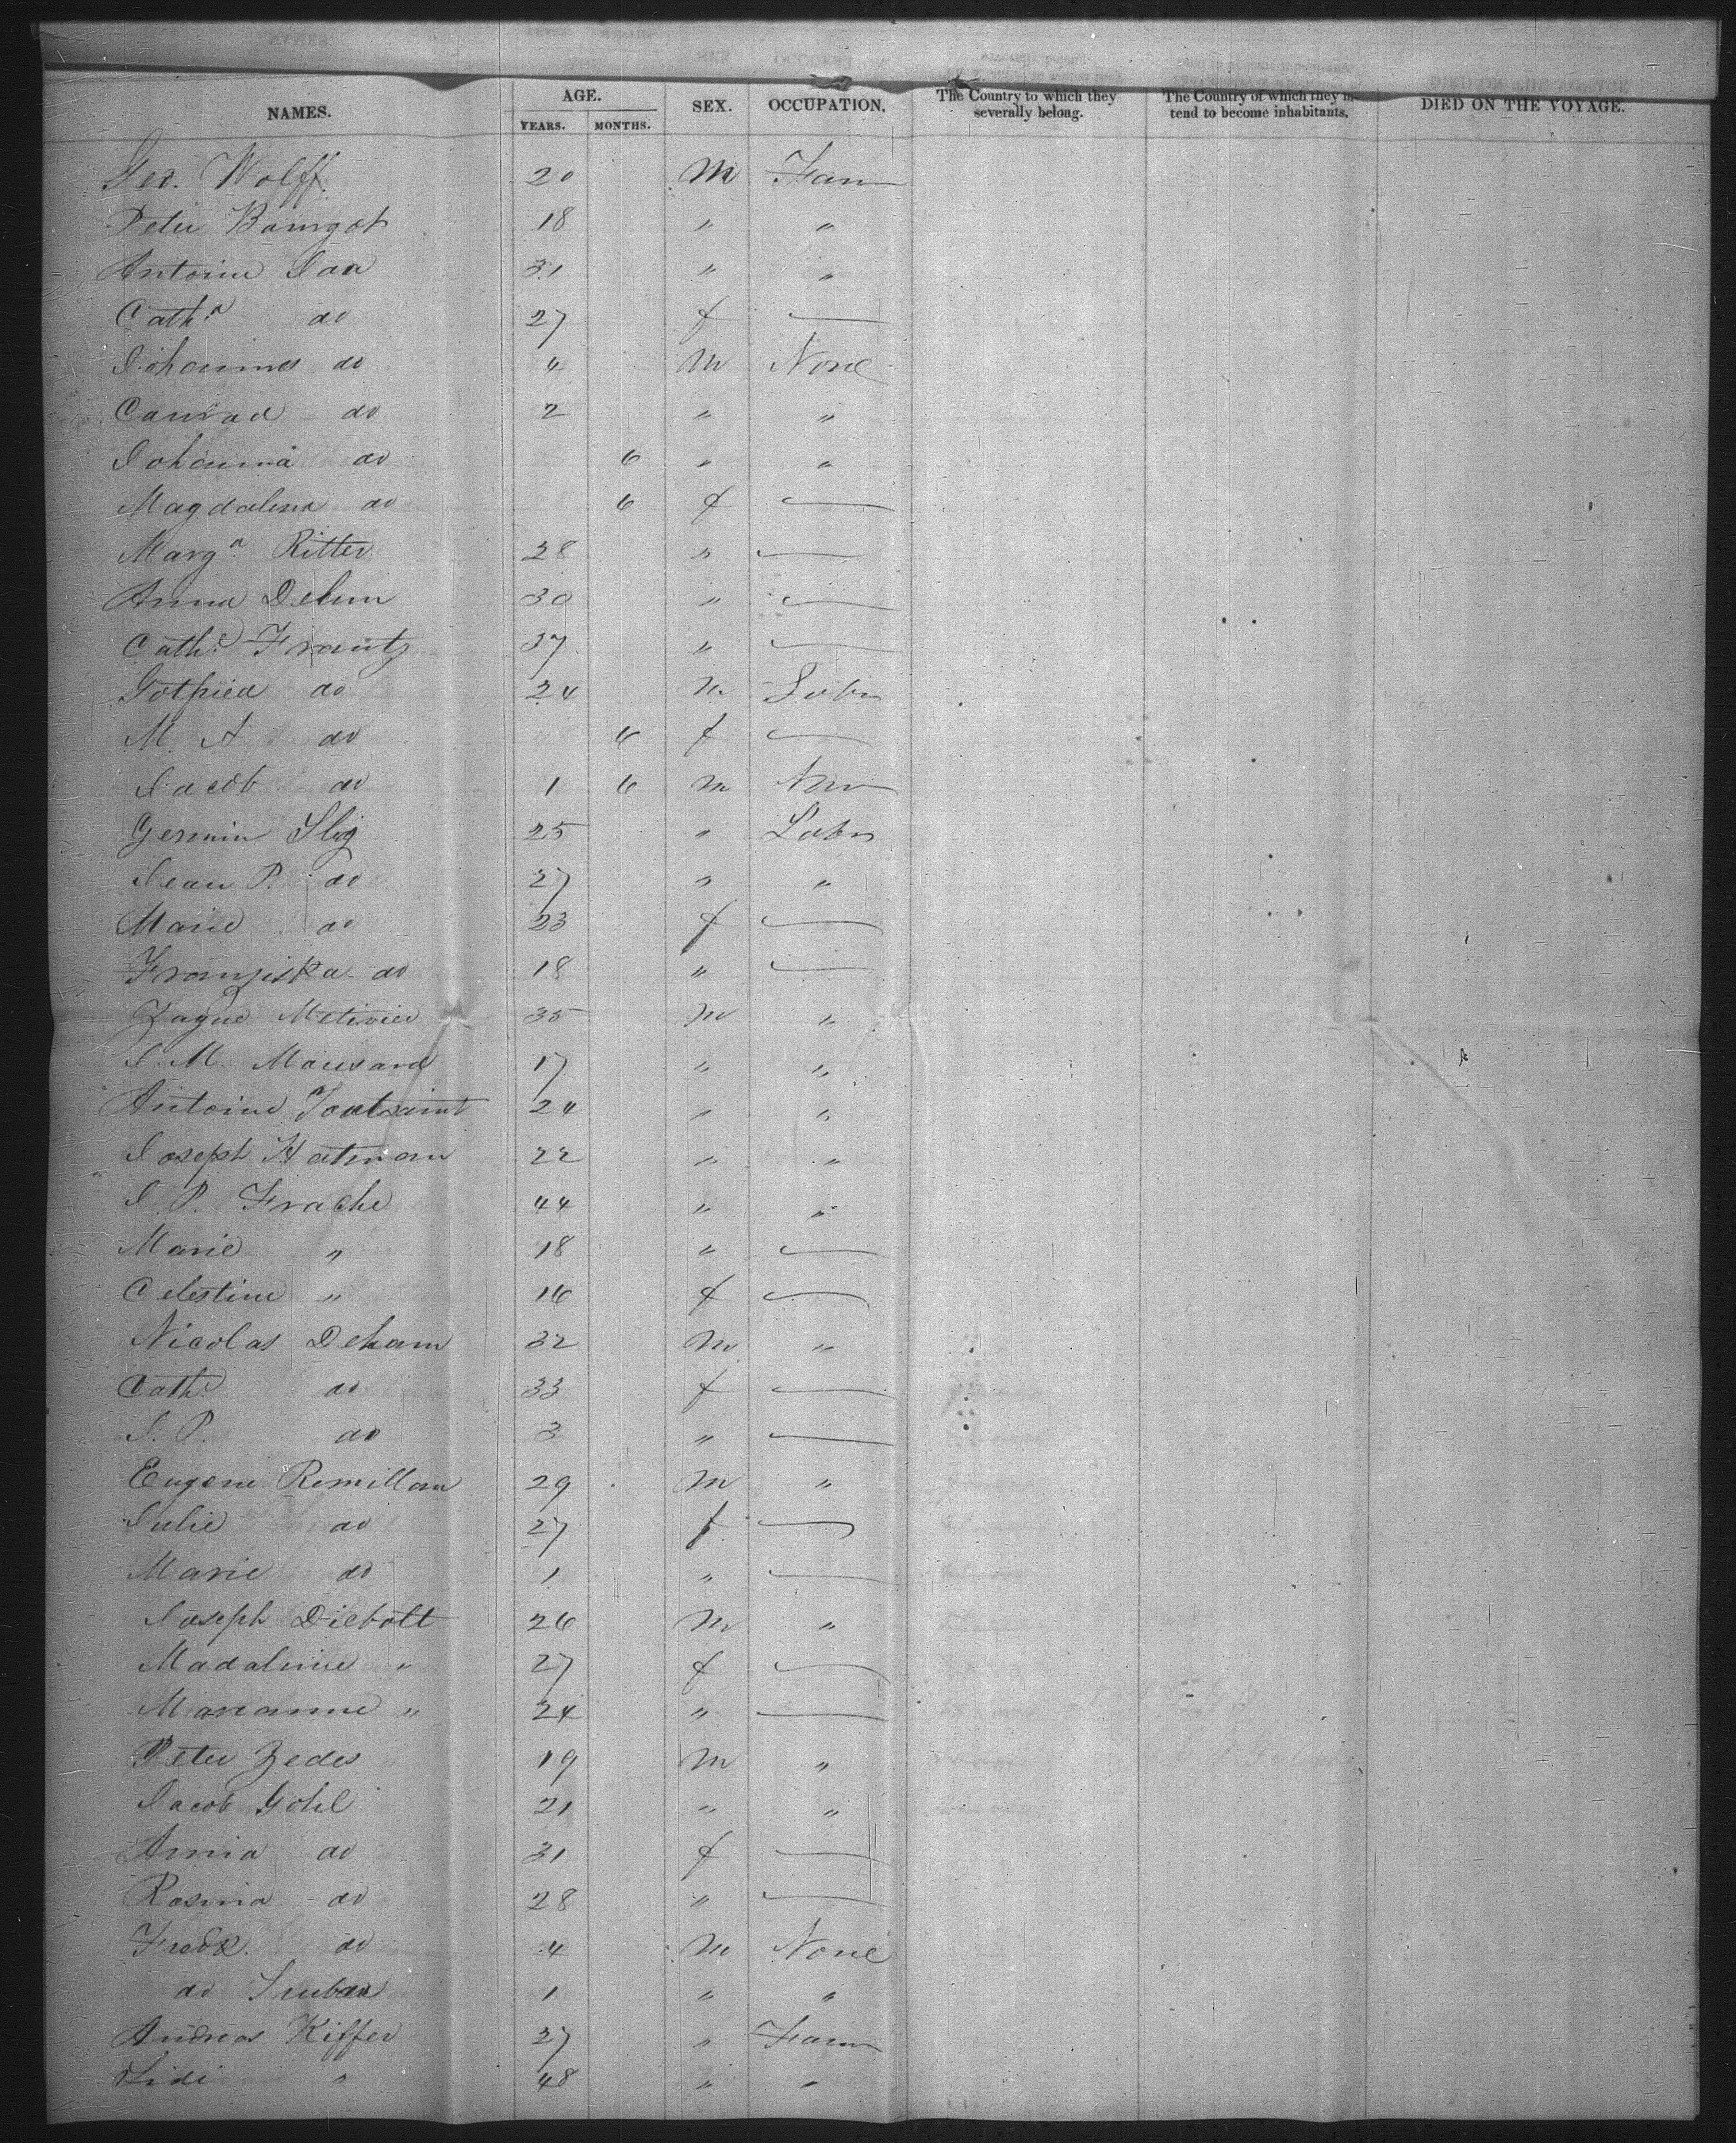 NAMES. AGE. YEARS. MONTHS. SEX. OCCUPATION. The Country to which they severally belong. The Country of which they in- tend to become inhabitants. DIED ON THE VOYAGE.
Geo. Wolff 20 M Farm
Peter 18 " "
Antoine 31 " "
Cath.a do 27 f —
Johannes do 4 M None
Conrad do 2 " "
Johanna do 6 " "
Magdalena do 6 f —
Marg.a Ritter 28 " —
Anna 30 " —
Cath. Frantz 37 " —
Gotfried do 24 M Labr
M. A do 6 f —
Jacob do 1 6 M None
Germin 25 " Labr
Jean P. do 27 " "
Marie do 23 f —
Franziska do 18 " —
Metivier 35 M "
J. M. Mansard 17 " "
Antoine Toutsaint 24 " "
Joseph Hatman 22 " "
J. P. Frache 44 " "
Marie " 18 " —
Celestine " 16 f —
Nicolas Deham 32 M "
Cath do 33 f —
J. P. do 3 " —
Eugene Remillon 29 M "
Julie do 27 f —
Marie do 1 " —
Joseph Diebolt 26 M "
Madaline " 27 f —
Marianne " 24 " —
Peter Zedes 19 M "
Jacob Gohl 21 " "
Anna do 31 f —
Rosina do 28 " —
Fredk. do 4 M None
do 1 " "
Andreas Kiffer 27 " Farm
" 48 " "